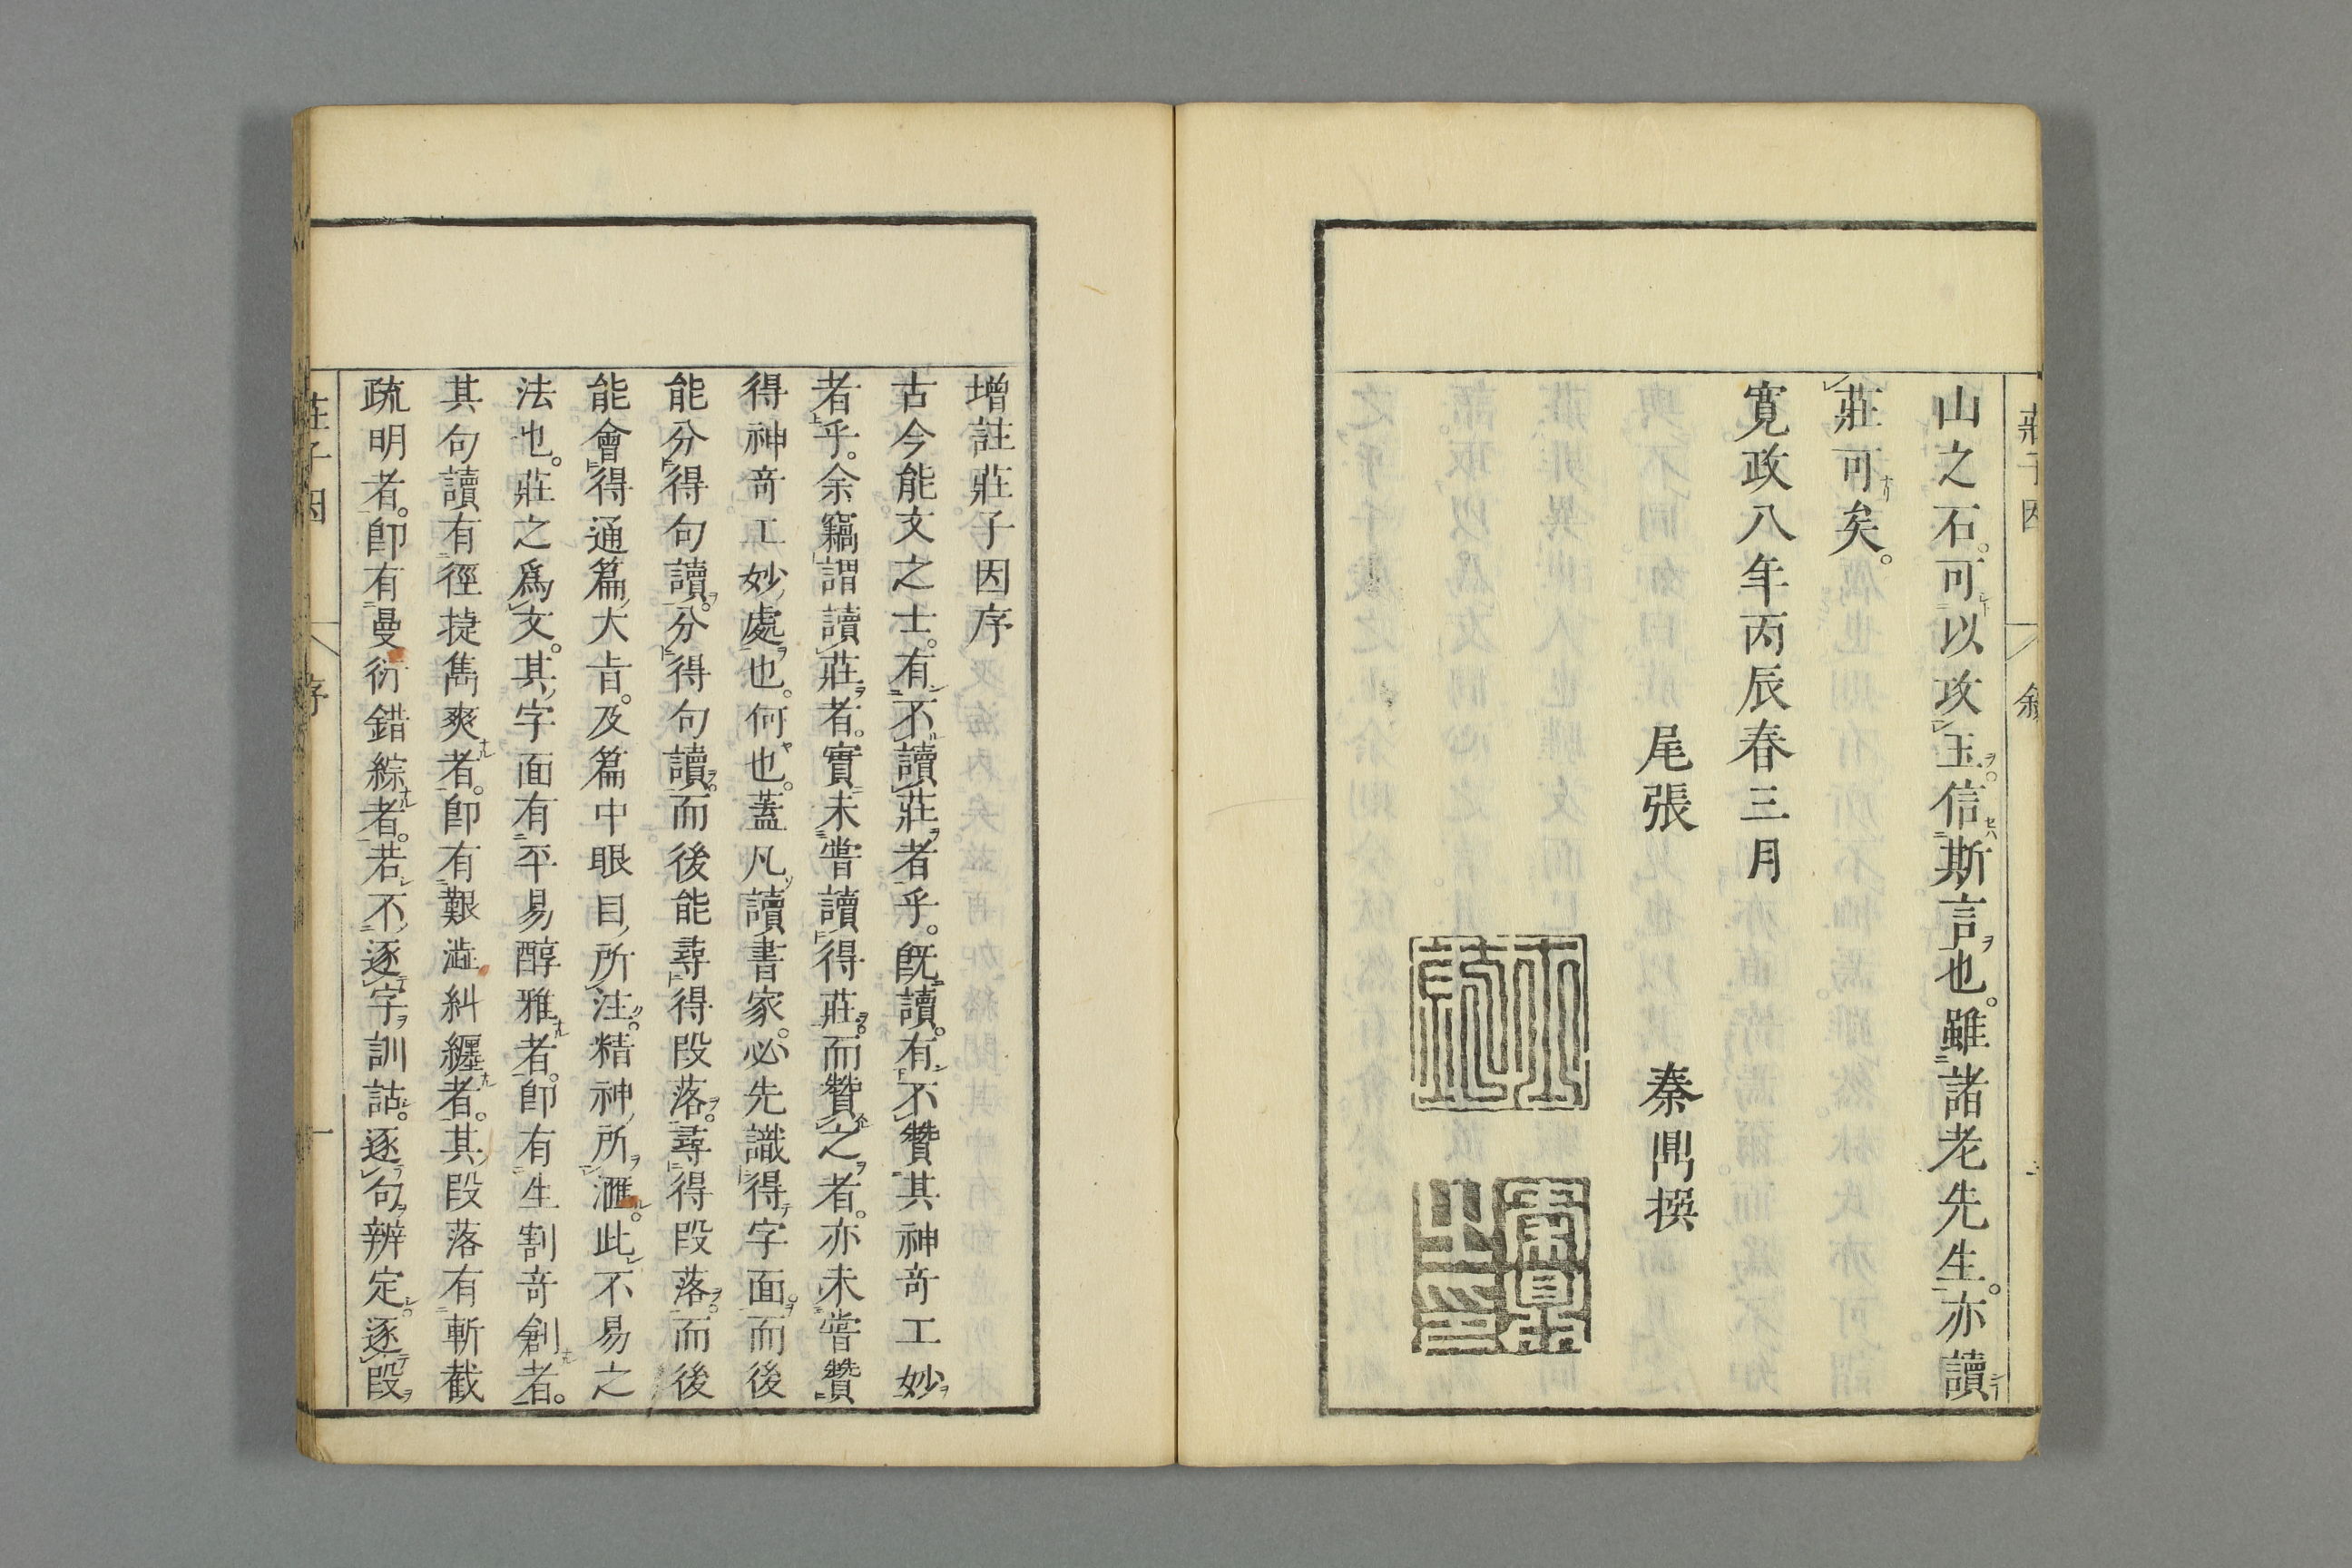 山之石。可以攻玉。信斯言也。雖諸老先生。亦讀
莊可矣。
寛政八年丙辰春三月
尾張 秦鼎撰
秦鼎之印
增註莊子因序
古今能文之士。有不讀莊者乎。既讀。有不贊其神竒工妙
者乎。余竊謂讀莊者。實未嘗讀得莊。而贊之者。亦未嘗贊
得神竒工妙處也。何也。蓋凡讀書家。必先識得字面。而後
能分得句讀。分得句讀。而後能尋得段落。尋得段落。而後
能會得通篇大旨。及篇中眼目所注。精神所滙。此不易之
法也。莊之爲文。其字面有平易醇雅者。卽有生割竒創者。
其句讀有徑捷雋爽者。卽有艱澁糾纒者。其段落有斬截
疏明者。卽有曼衍錯綜者。若不逐字訓詁。逐句辨定。逐段
莊子因 序 一